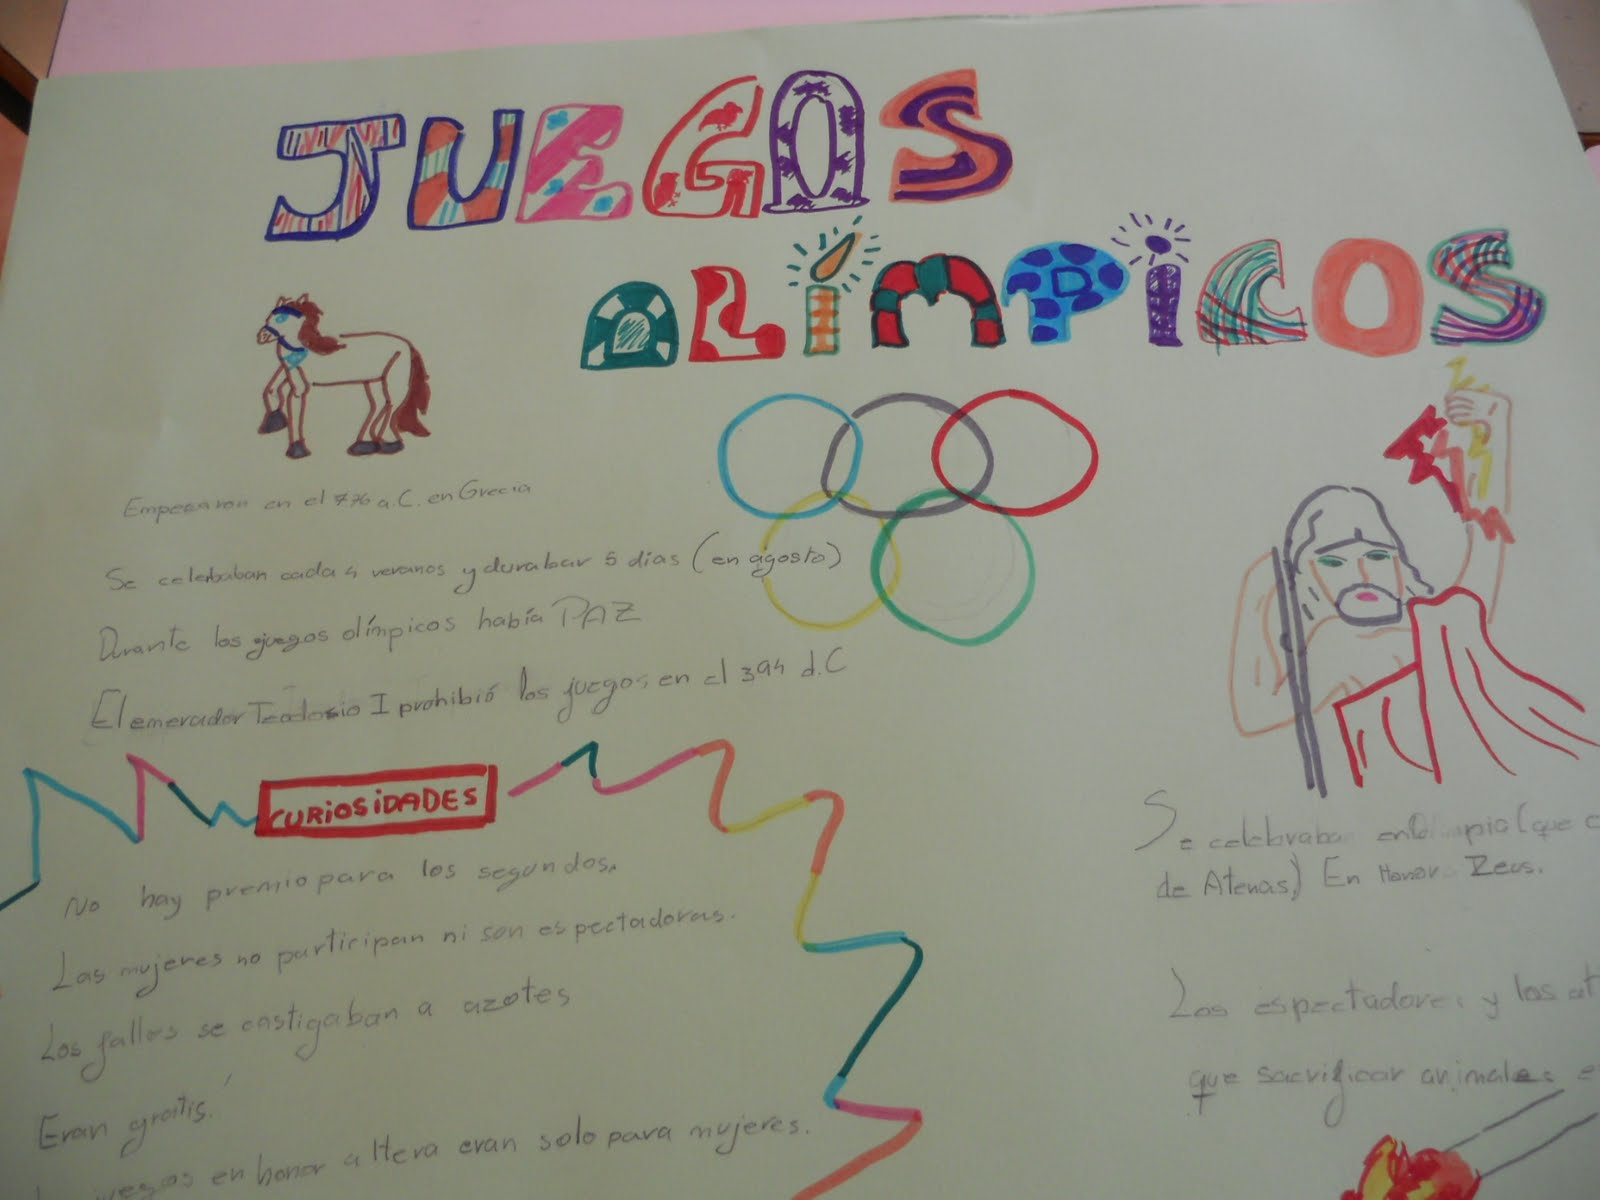 JUEGOS
OLÍMPICOS
Empezaron en el 776 a.C. en Grecia
Se celebaban cada 4 veranos y durabar 5 dias (en agosto)
Durante los juegos olímpicos había PAZ
El emerador Teodosio I prohibió los juegos en el 394 d.C
CURIOSIDADES
No hay premio para los segundos.
Las mujeres no participan ni son espectadoras.
Los fallos se castigaban a azotes
Eran gratis.
juegos en honor a Hera eran solo para mujeres.
Se celebraban en Olimpia (que
de Atenas,) En Honor a Zeus.
Los espectadores y los at
que sacrificar animales e